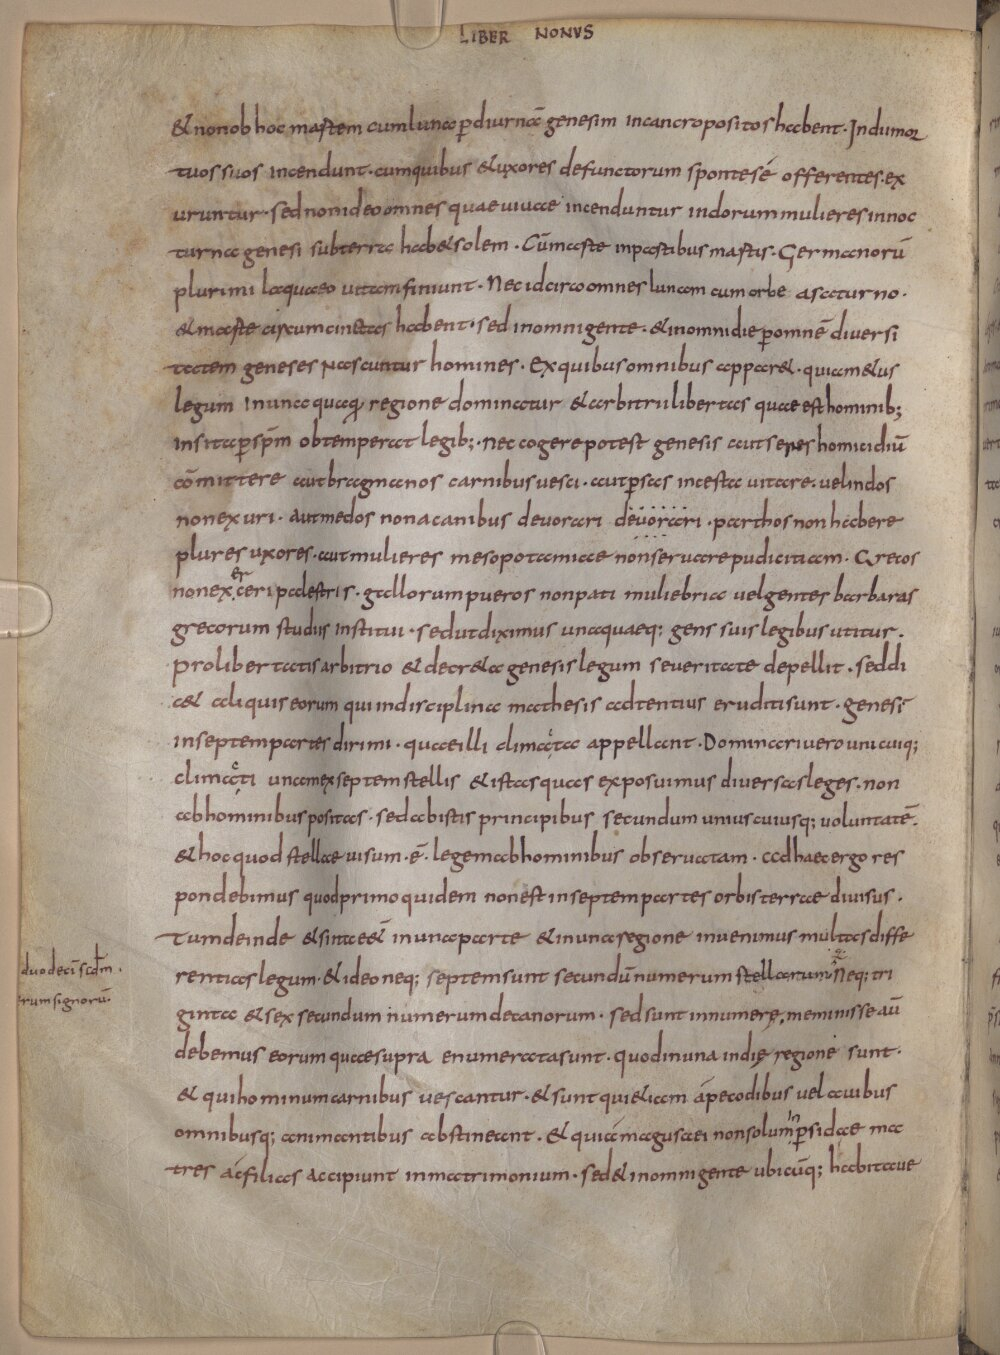 LIBER NONVS
& non ob hoc mastem cum luna p̄ diurnā genesim in cancro positos habent · Indi mor
tuos suos incendunt · cum quibus & uxores defunctorum sponte sē offerentes · ex
uruntur · sed non ideo omnes quae uiuae incenduntur indorum mulieres in noc
turna genesi sub terra hab& solem · Cūmaste inpastibus mastis · Germanorū
plurimi laquaeo uitam finiunt · Nec idcirco omnes lunam cum orbe asaturno ·
& maste circumcinctas habent · sed in omni gente · & in omni die p̄ omnē diversi
tatem geneses nascuntur homines · Ex quibus omnibus appar& · quiam &us
legum In unaquaq; regione dominatur & arbitrii libertas quae est hominib;
insita p̄ sp̄m obtemperat legib; · nec cogere potest genesis aut seres homicidiū
cōmittere aut bragmanos carnibus uesci · aut p̄sas incesta uitare · uel indos
non exuri · Aut medos non a canibus devorari devorari · parthos non habere
plures uxores · aut mulieres mesopotamiae non servare pudicitiam · Grecos
non exceri palestris · gallorum pueros non pati muliebria uel gentes barbaras
er
grecorum studiis institui · sed ut diximus unaquaeq; gens suis legibus utitur ·
pro libertatis arbitrio & decr&a genesis legum severitate depellit · sed di
c& aliquis eorum qui in disciplina mathesis adtentius eruditi sunt · genesī
in septem partes dirimi · quae illi climata appellant · Dominari vero unicuiq;
climati unam ex septem stellis & istas quas exposuimus diversas leges · non
ab hominibus positas · sed ab istis principibus secundum uniuscuiusq; voluntatē ·
& hoc quod stellae uisum · ē · legem ab hominibus observatam · ad haec ergo res
pondebimus quod primo quidem non est in septem partes orbis terrae divisus ·
Tum deinde & si ita e&̄ in una parte & in una regione invenimus multas diffe
rentias legum · & ideo neq; septem sunt secundū numerum stellarum · Neq; tri
ginta & sex secundum numerum decanorum · sed sunt innumerę, meminisse aū
duodecī scdm ·
rum signorū ·
debemus eorum quae supra enumerata sunt · quod in una indię regione sunt ·
& qui hominum carnibus vescantur · & sunt qui &iam a pecodibus vel avibus
omnibusq; animantibus abstineant · & quia magusaei non solum in p̄sidae ma
tres ac filias accipiunt in matrimonium · sed & in omni gente ubicūq; habitave